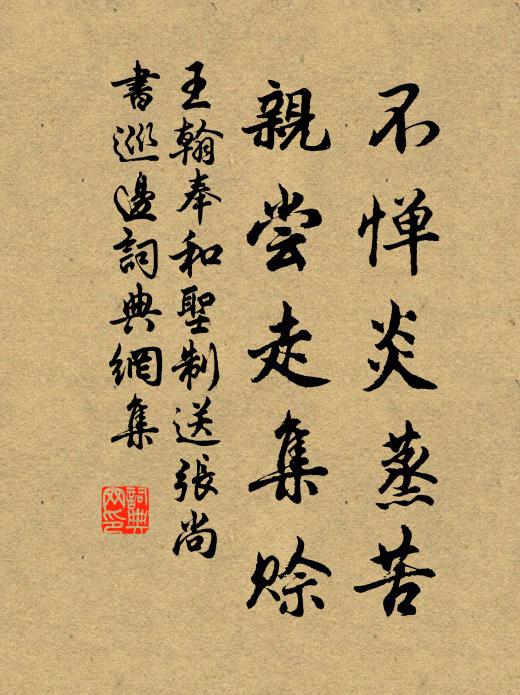 不惮炎蒸苦
親尝走集赊
王翰奉和聖制送張尚
書巡邊詞典網集
詞典
网印